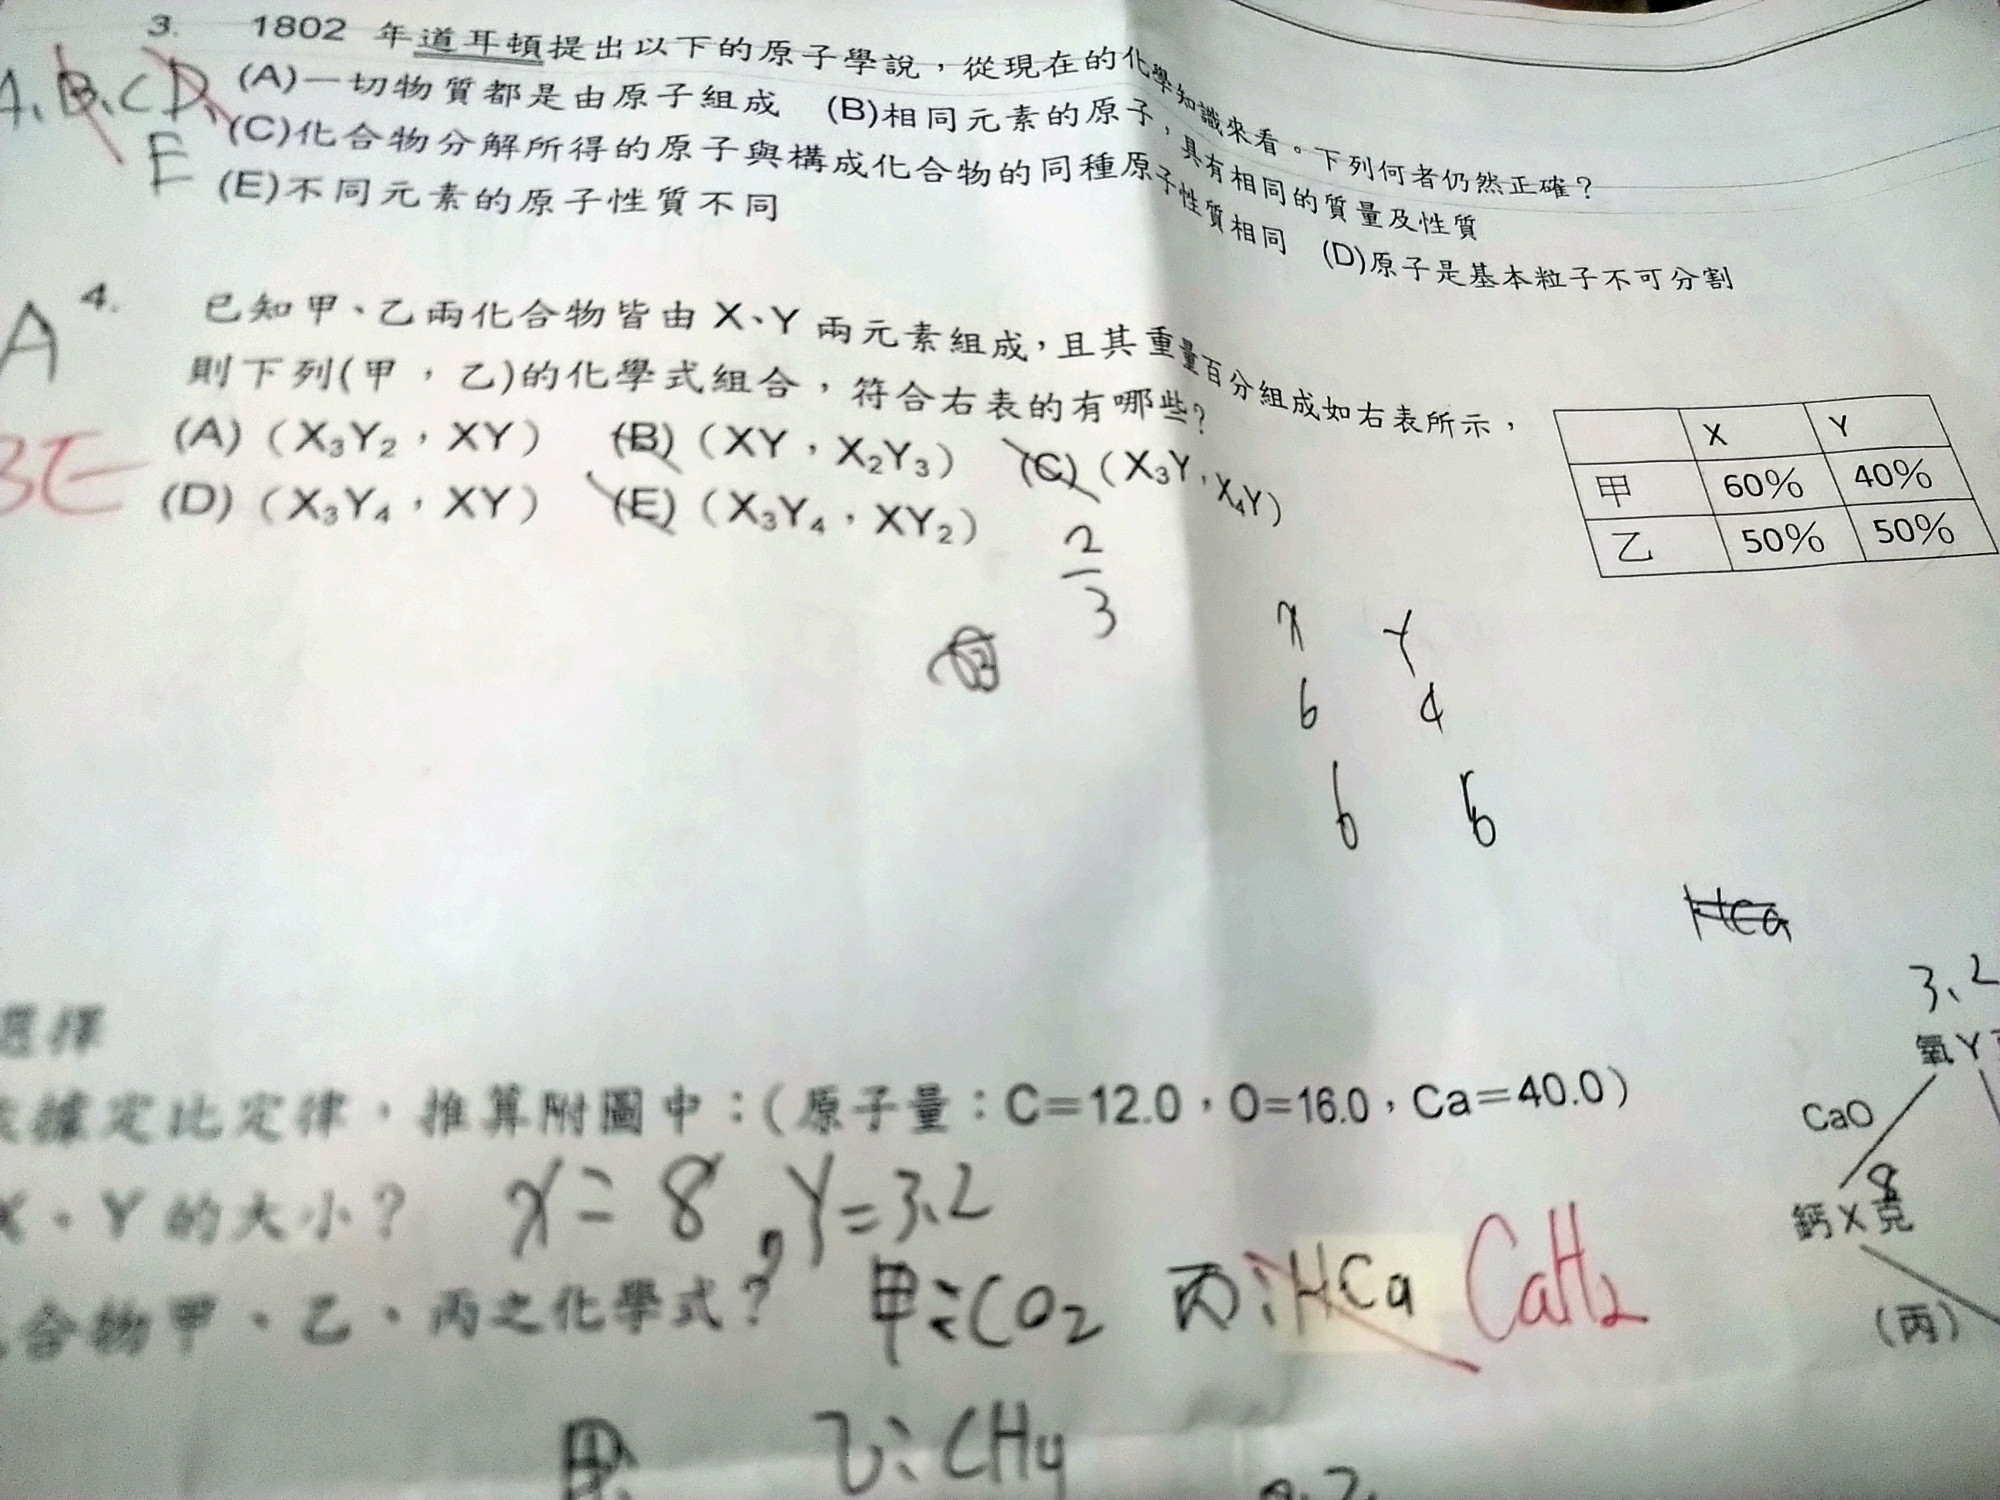 3. 1802 年道耳頓提出以下的原子學說，從現在的化學知識來看。下列何者仍然正確？
A、B、C D、
(A)一切物質都是由原子組成 (B)相同元素的原子，具有相同的質量及性質
E
(C)化合物分解所得的原子與構成化合物的同種原子性質相同 (D)原子是基本粒子不可分割
(E)不同元素的原子性質不同
A
4. 已知甲、乙兩化合物皆由 X、Y 兩元素組成，且其重量百分組成如右表所示，
則下列(甲，乙)的化學式組合，符合右表的有哪些？
(A)（X₃Y₂，XY） (B)（XY，X₂Y₃） (C)（X₃Y，X₄Y）
BE
(D)（X₃Y₄，XY） (E)（X₃Y₄，XY₂）
X Y
甲 60% 40%
乙 50% 50%
2
3
X Y
6 4
6 6
HCa
3.2
選擇
氧 Y
依據定比定律，推算附圖中：（原子量：C＝12.0，O=16.0，Ca＝40.0）
CaO
8
X、Y 的大小？ X = 8, Y = 3.2
鈣 X 克
合物甲、乙、丙之化學式？ 甲：CO₂ 丙：HCa CaH₂
(丙)
乙：CH₄